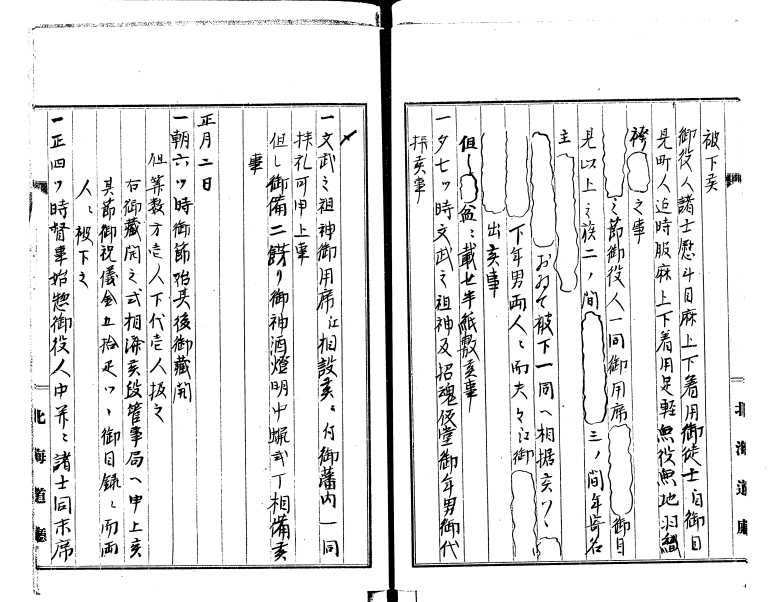 被下候
御役人諸士熨斗目麻上下着用御徒士ヨリ御目
見町人迄時服麻上下着用足軽無役無地羽織
袴 之事
之節御役人一同御用席 御目
見以上之族二ノ間 三ノ間年寄名
主
おゐて被下一同ヘ相据候ツヽ
下年男両人ニ而夫々江御
出候事
但シ 盆ニ載セ半紙敷候事
一夕七ツ時文武之祖神及招魂仮堂御年男御代
拝候事
一文武之祖神御用席江相設候ニ付御藩内一同
拝礼可申上事
但シ御備二餝リ御神酒燈明中蝋弐丁相備候
事
正月二日
一朝六ツ時御節始其後御藏開
但算数方壱人下代壱人扱之
右御藏開之式相済候段督事局ヘ申上候
其節御祝儀金五拾疋ツヽ御目録ニ而両
人ニ被下之
一正四ツ時督事始惣御役人中并ニ諸士同末席
北海道廳
北海道廳